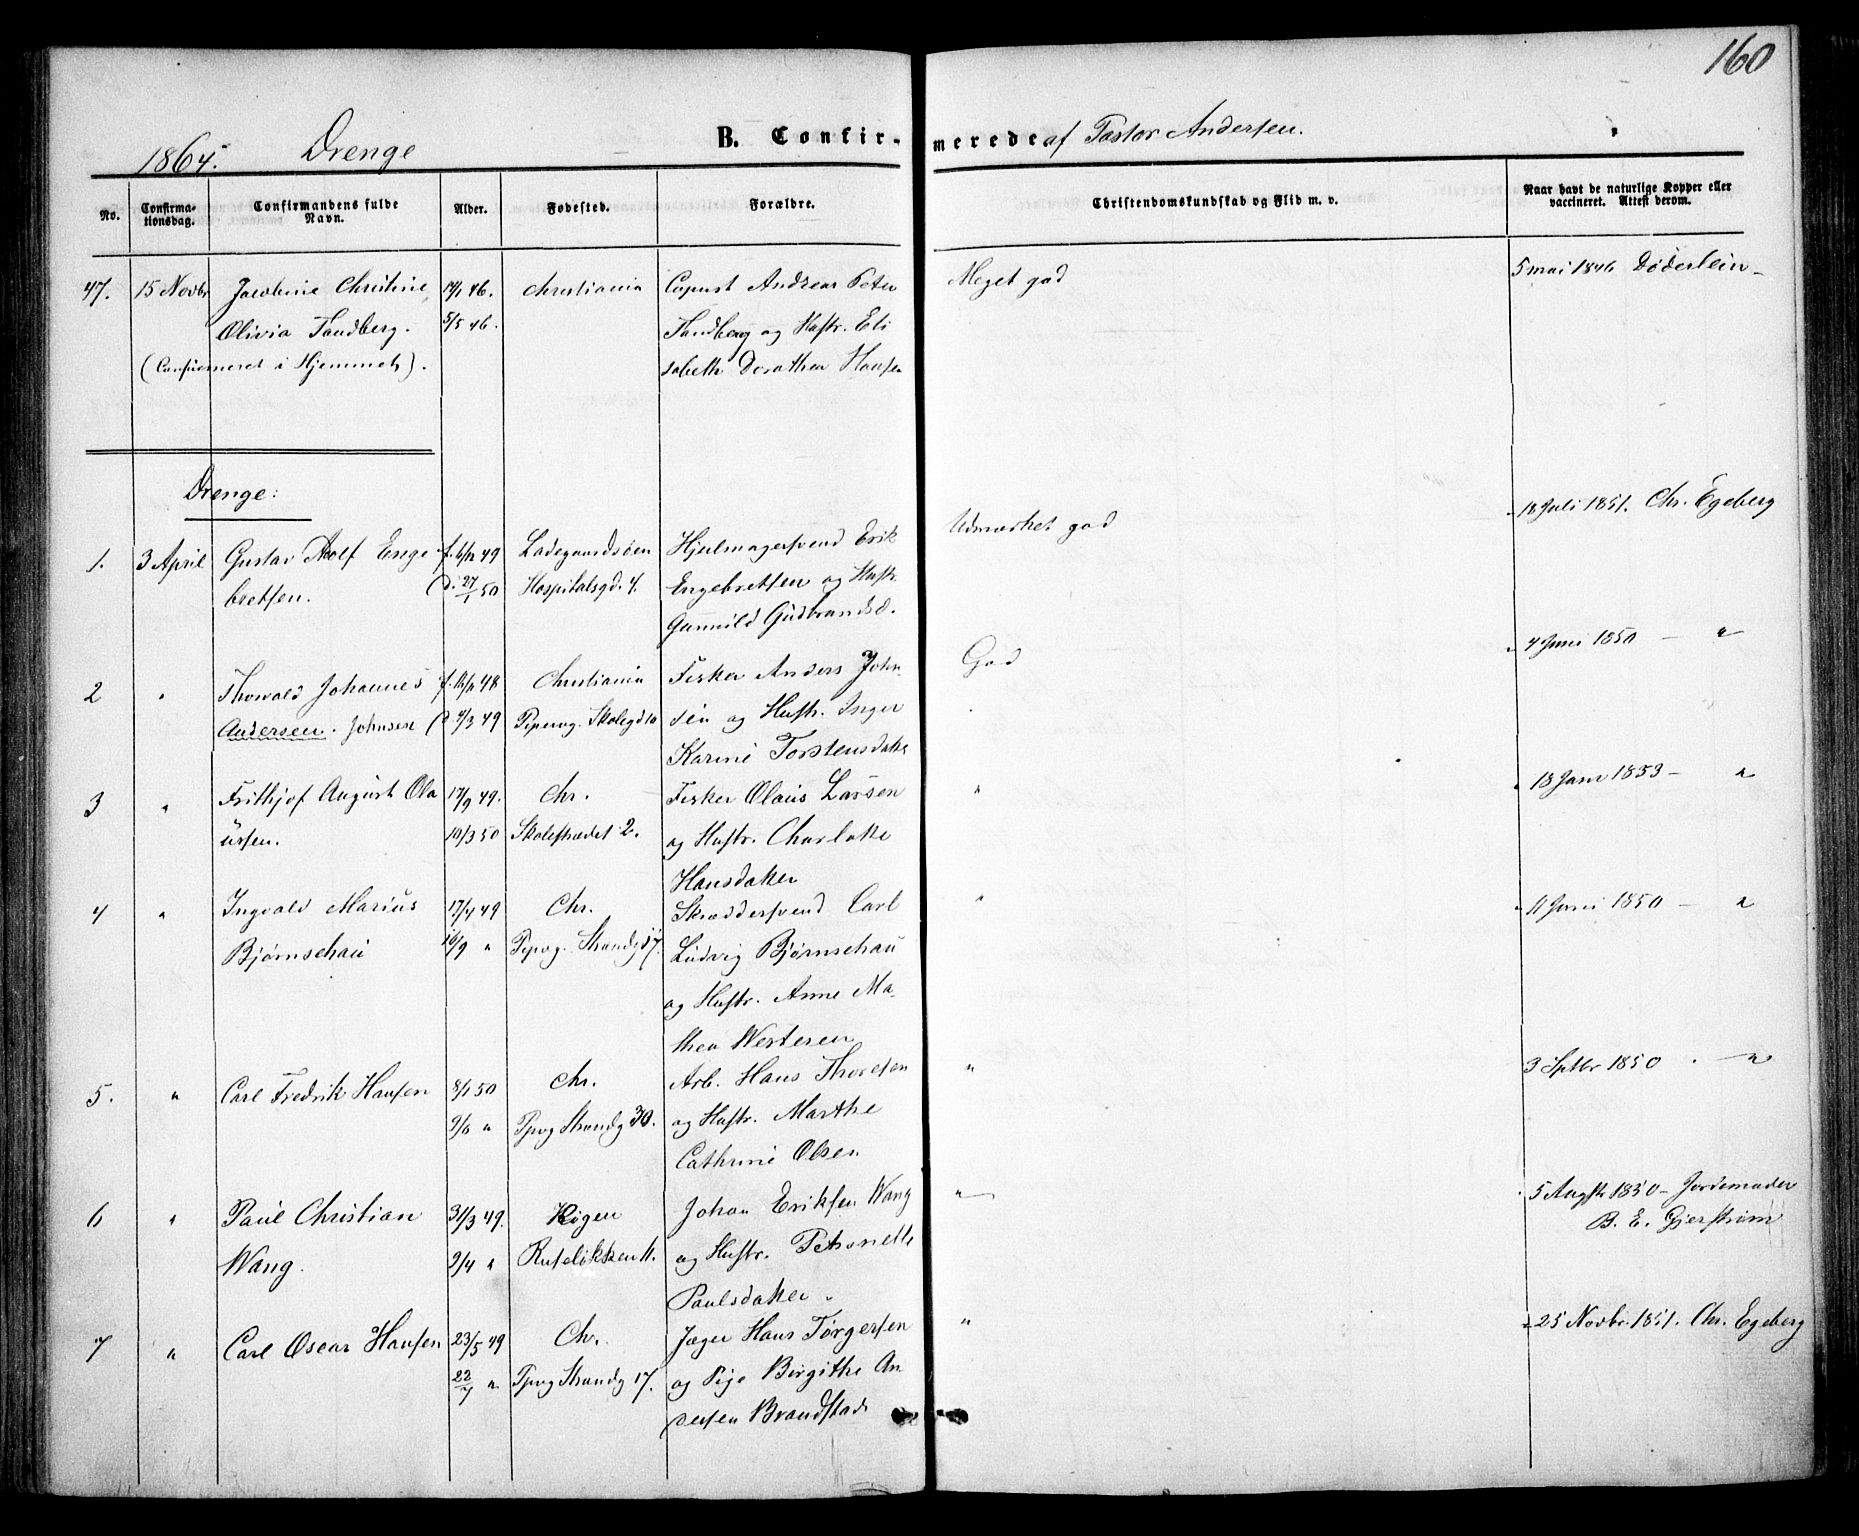 160
1864. Drenge B. Confir- merede af Pastor Andersen.
No. Confirma-tionsdag. Confirmandens fulde Navn. Alder. Fødested. Forældre. Christendomskundskab og Flid m. v. Naar havt de naturlige Kopper eller vaccineret. Attest derom.
47. 15 Novbr Jacobine Christine 14/1 46. Christiania August Andreas Peter Meget god 5 mai 1846 Døderlein
Olivia Sandberg. 5/5 46. Sandberg og Hustr. Eli
(Confirmeret i Hjemmet). sabeth Dorothea Hansen
Drenge:
1. 3 April Gustav Adolf Enge f. 6/12 49 Ladegaardsøen Hjulmagersvend Erik Udmærket god 18 Juli 1851. Chr. Egeberg
bretsen. d. 27/1 50 Hospitalsgd. 4. Engebretsen og Hustr.
Gunnild Gudbrandsd.
2 " Thorvald Johannes f. 12/12 48 Christiania Fisker Anders John- God 4 Juni 1850 — "
Andersen. Johnsen d. 4/3 49 Pipervig. Skolegd 10 sen og Hustr. Inger
Karine Torstensdatter
3 " Frithjof August Ola 17/9 49. Chr. Fisker Olaus Larsen " 18 Janr 1853 — "
ussen. 10/3 50 Skolestrædet 2. og Hustr. Charlotte
Hansdatter
4 " Ingvald Marius 17/4 49 Chr. Skræddersvend Carl " 11 Juni 1850 — "
Bjørnschau 16/9 " Pipvg. Strandgd 7. Ludvig Bjørnschau
og Hustr. Anne Ma-
thea Westeren
5. " Carl Fredrik Hansen 8/1 50 Chr. Arb. Hans Thoresen " 3 Septbr 1850 — "
9/6 " Ppvg Strandg 30. og Hustr. Marthe
Cathrine Olsen
6 " Paul Christian 31/3 49. Røgen Johan Eriksen Wang " 5 Augst 1850 — Jordemoder
B. E. Gjerstrøm
Wang. 9/4 " Ruseløkken 11. og Hustr. Petronelle
Paulsdatter.
7 " Carl Oscar Hansen 23/5 49 Chr. Jæger Hans Tørgersen " 25 Novbr. 1851. Chr. Egeberg
22/7 " Ppvg Strandg 17. og Pige Birgithe An
dersen Brandstad